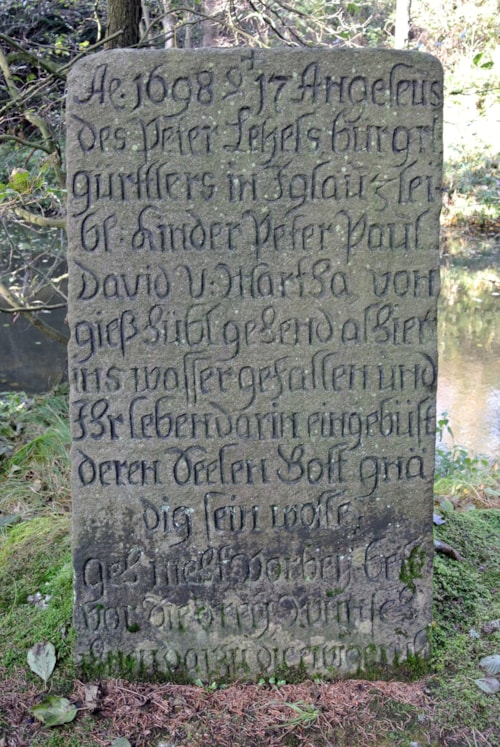 Ao. 1698 d 17 Angeleus
des Peter Lekels burgrl
gürttlers in Iglau 3 lei
bl. Kinder Peter Paul
David V: Martha von
gießhübl gehend alhier
ins wasser gefallen und
Ihr leben darin eingebüst
deren Seelen Gott gnä
dig sein wolle.
geh nicht vorbeÿ bett
vor die dreÿ